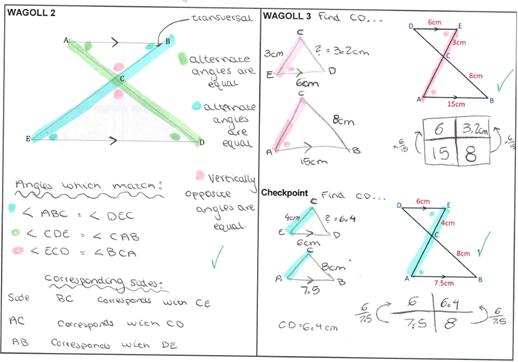 WAGOLL 2
transversal
A
B
C
E
D
alternate
angles are
equal
alternate
angles are
equal
vertically
opposite
angles are
equal.
Angles which match:
< ABC = < DEC
< CDE = < CAB
< ECD = < BCA
Corresponding sides:
Side BC corresponds with CE
AC corresponds with CD
AB corresponds with DE
WAGOLL 3 Find CD...
C
3cm
? = 3.2cm
E
D
6cm
C
8cm
A
B
15cm
6cm
D
E
3cm
C
8cm
A
B
15cm
6 3.2cm
15 8
6/15
6/15
Checkpoint Find CD...
C
4cm
? = 6.4
E
D
6cm
C
8cm
A
B
7.5
CD = 6.4cm
6cm
D
E
4cm
C
8cm
A
B
7.5cm
6 6.4
7.5 8
6/7.5
6/7.5